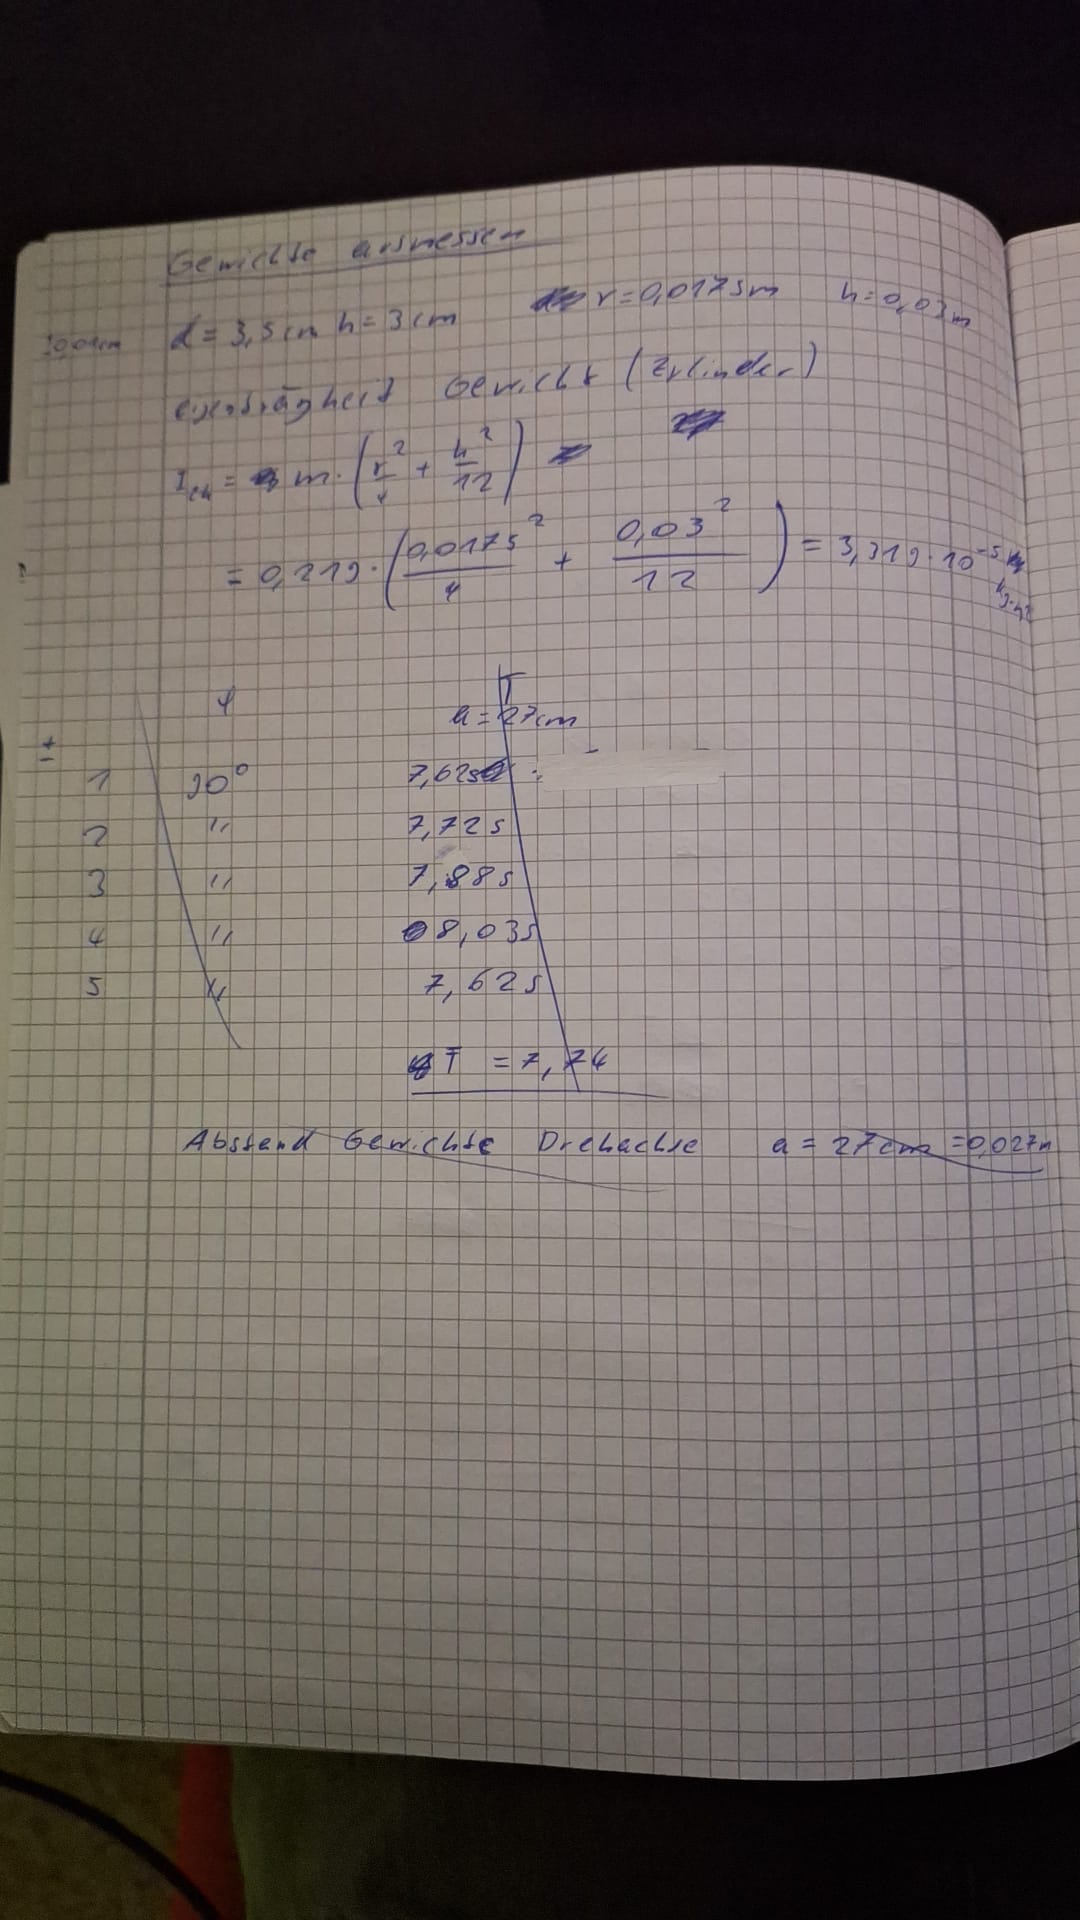 Gewichte ausmessen
d = 3,5cm h = 3cm r = 0,0175m h = 0,03m
Gewicht (Zylinder)
= m · (r²/4 + h²/12) =
= 0,219 · (0,0175²/4 + 0,03²/12) = 3,319 · 10⁻⁵
kg·m²
φ T
a = 27cm
±
1 90° 7,62s
2 " 7,72s
3 " 7,88s
4 " 8,03s
5 " 7,62s
T = 7,74
Abstand Gewichte Drehachse a = 27cm = 0,027m